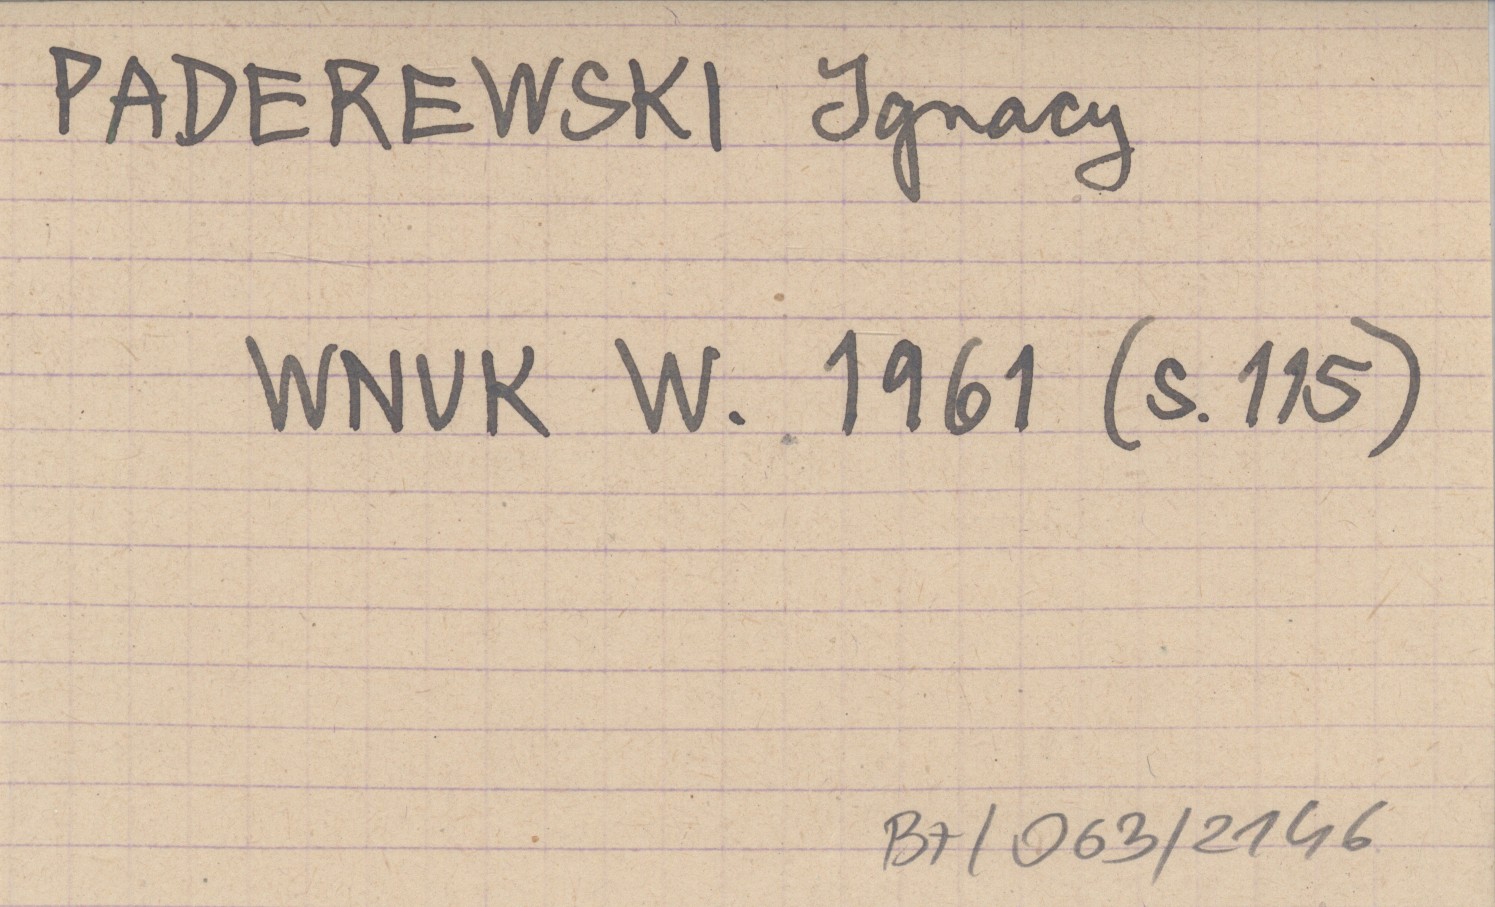 PADEREWSKI Ignacy
WNUK W. 1961 (s. 115)
B7/063/2146